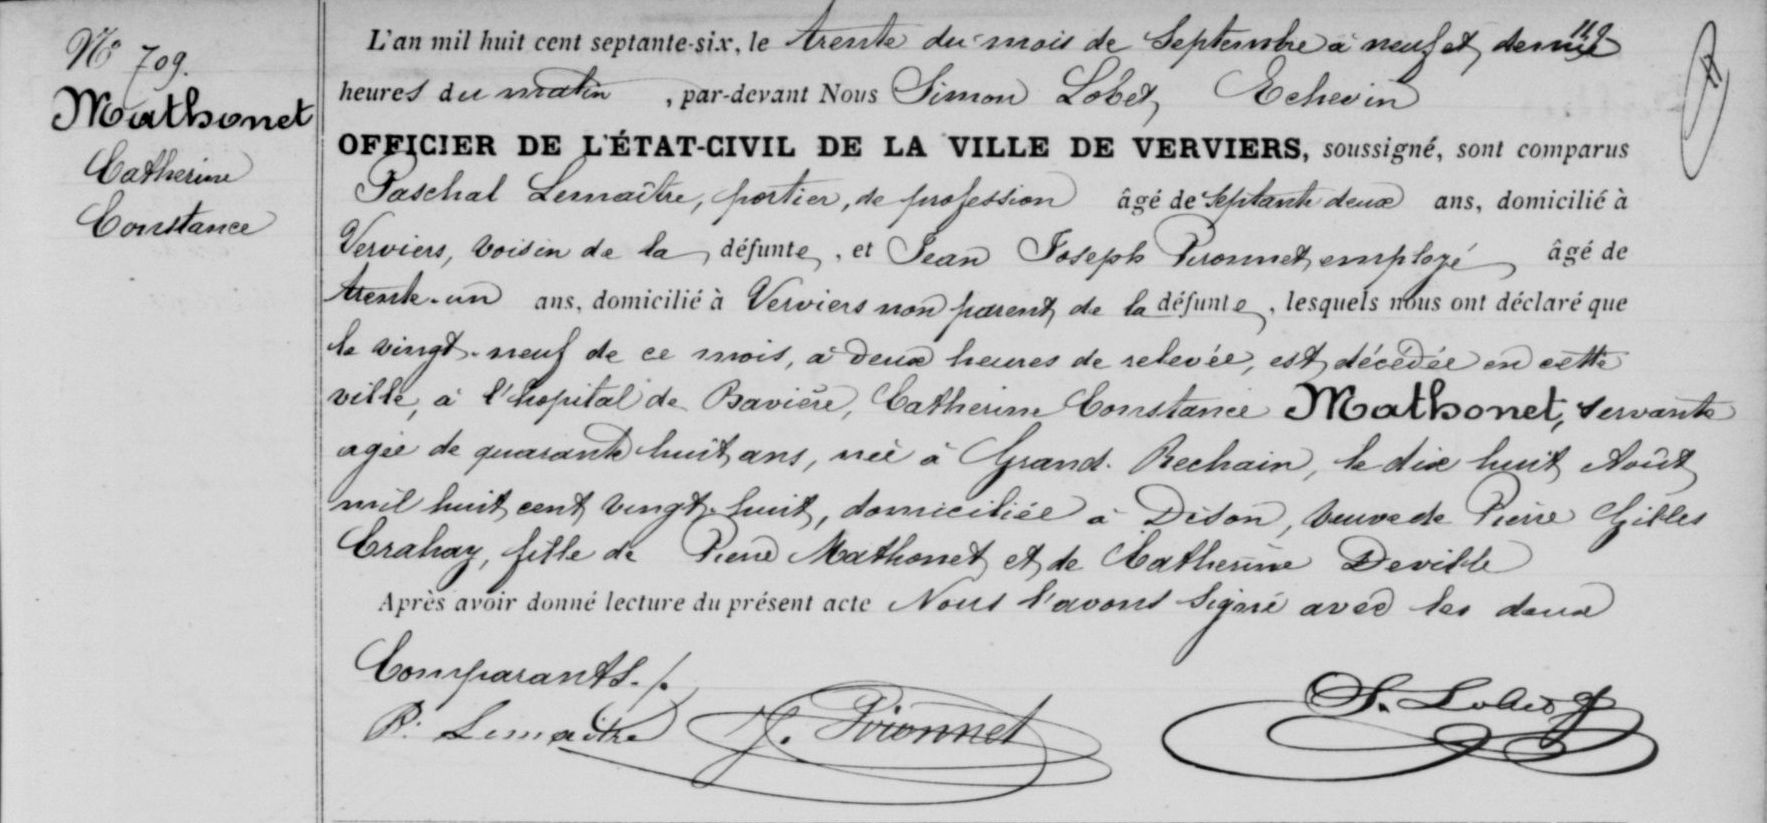 N° 709.
Mathonet
Catherine
Constance
L'an mil huit cent septante-six, le trente du mois de Septembre à neuf et demie
heures du matin, par-devant Nous Simon Lobet, Echevin
OFFICIER DE L'ÉTAT-CIVIL DE LA VILLE DE VERVIERS, soussigné, sont comparus
Paschal Lemaître, portier, de profession âgé de septante deux ans, domicilié à
Verviers, voisin de la défunte, et Jean Joseph Pironnet, employé âgé de
trente-un ans, domicilié à Verviers non parent de la défunte, lesquels nous ont déclaré que
le vingt-neuf de ce mois, à deux heures de relevée, est décédée en cette
ville, à l'hopital de Bavière, Catherine Constance Mathonet, servante
agée de quarante huit ans, née à Grand-Rechain, le dix huit Août
mil huit cent vingt-huit, domiciliée à Dison, veuve de Pierre Gilles
Crahay, fille de Pierre Mathonet et de Catherine Deville
Après avoir donné lecture du présent acte Nous l'avons signé avec les deux
Comparants./.
P. Lemaitre J. Pironnet S. Lobet